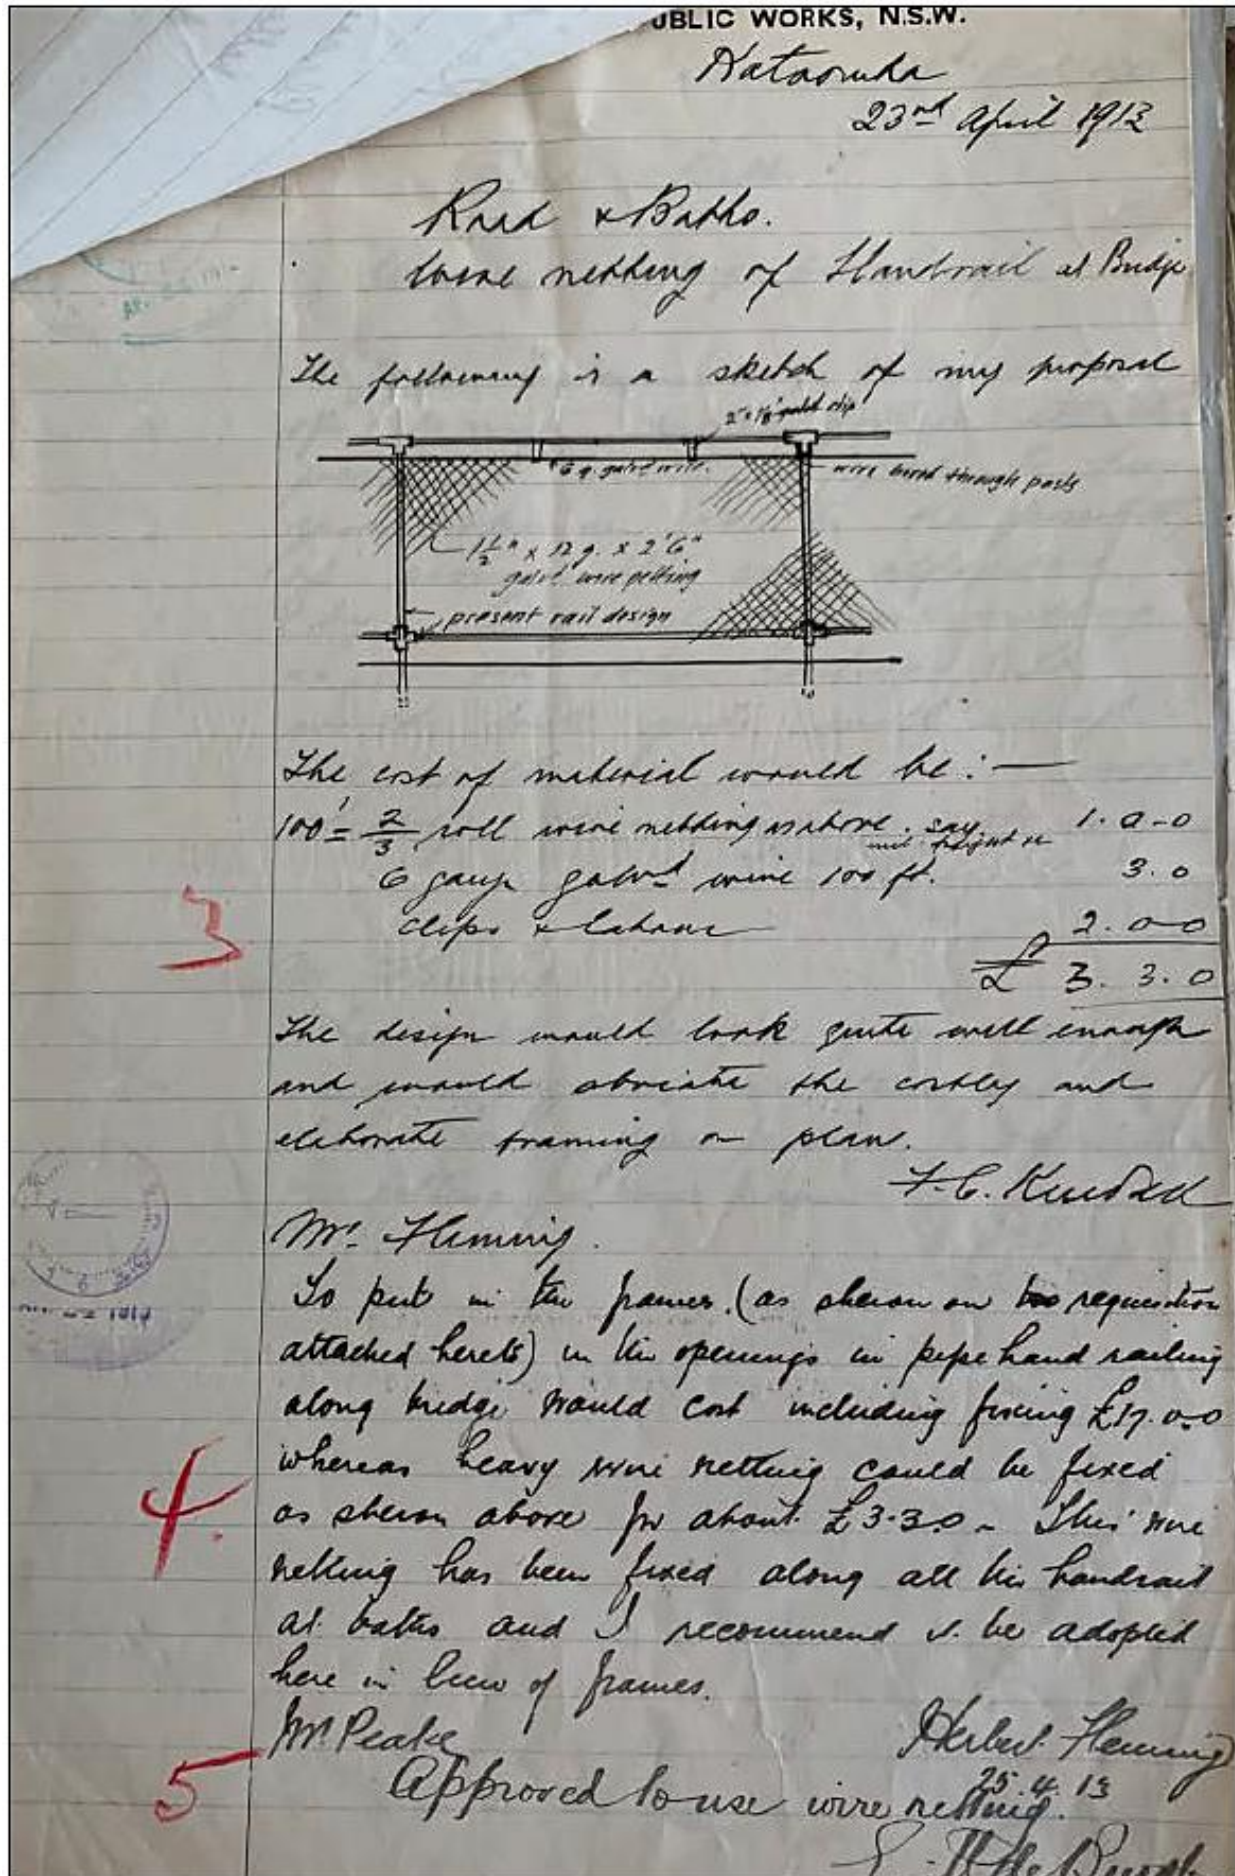 UBLIC WORKS, N.S.W.
Katoomba
23rd April 1913
Road & Baths.
Wire netting of Handrail at Bridge
The following is a sketch of my proposal
2" x 1/8" galvd clip
6 g. galvd wire.
wire bored through posts
1½" x 12 g. x 2'6"
galvd. wire netting
present rail design
The cost of material would be :—
100' = 2/3 roll wire netting as above. say 1. 0-0
incl. freight
6 gauge galvd wire 100 ft. 3. 0
clips & labour 2. 0 0
£ 3. 3. 0
The design would look quite well enough
and would obviate the costly and
elaborate framing on plan.
F.C.
Mr. Fleming.
To put in the frames. (as shewn on requisition
attached hereto) in the openings in pipe hand railing
along bridge would cost including fixing £17.0.0
whereas heavy wire netting could be fixed
as shewn above for about £3.3.0 - This wire
netting has been fixed along all the handrail
at baths and I recommend it be adopted
here in lieu of frames.
Mr Peake
Herbert Fleming
25.4.13
Approved to use wire netting.
3
4.
5